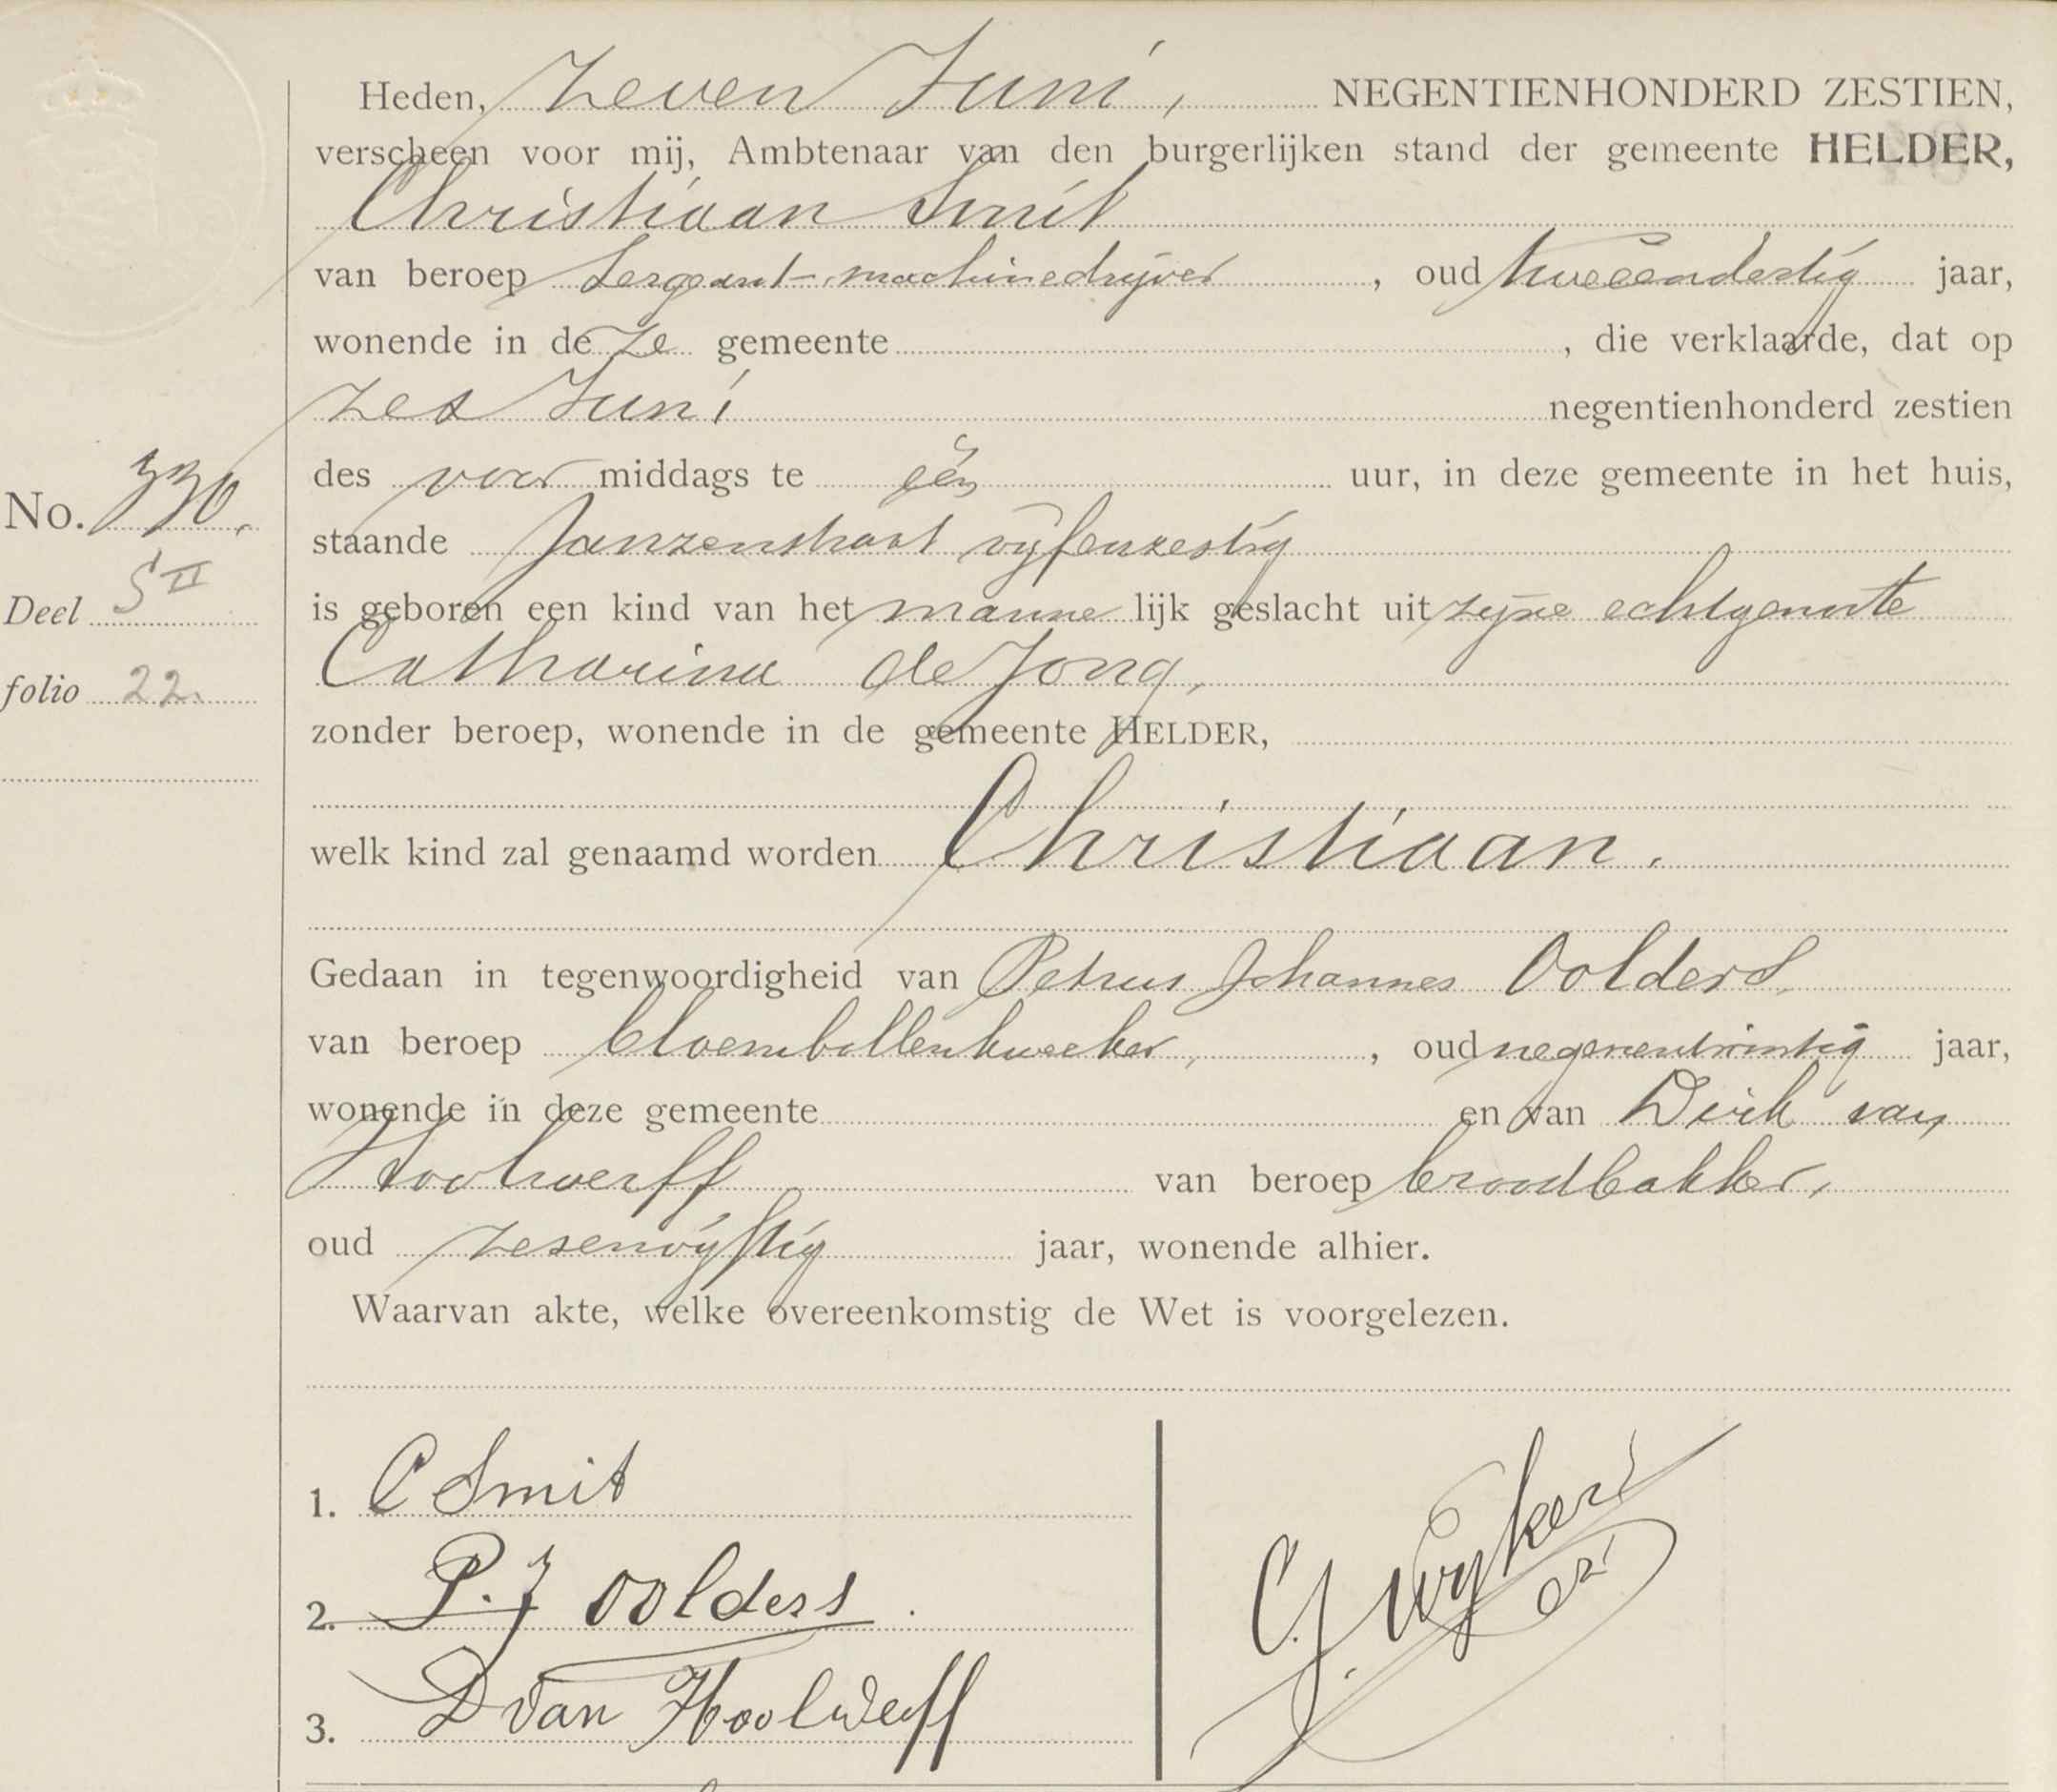 Heden, Zeven Juni, NEGENTIENHONDERD ZESTIEN,
verscheen voor mij, Ambtenaar van den burgerlijken stand der gemeente HELDER,
Christiaan Smit
van beroep Sergeant-machinedrijver, oud tweeendertig jaar,
wonende in deze gemeente, die verklaarde, dat op
zes Juni negentienhonderd zestien
des voor middags te één uur, in deze gemeente in het huis,
No. 330.
staande Janzenstraat vijfenzestig
Deel 5 II
is geboren een kind van het mannelijk geslacht uit zijne echtgenoote
folio 22.
Catharina de Jong,
zonder beroep, wonende in de gemeente HELDER,
welk kind zal genaamd worden Christiaan.
Gedaan in tegenwoordigheid van Petrus Johannes Oolders,
van beroep bloembollenkweeker, oud negenentwintig jaar,
wonende in deze gemeente en van Dirk van
Hoolwerff van beroep broodbakker,
oud zesenvijftig jaar, wonende alhier.
Waarvan akte, welke overeenkomstig de Wet is voorgelezen.
1. C Smit
2. P. J Oolders.
3. D van Hoolwerff